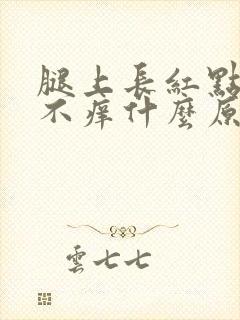 腿上長紅點
不痒什麼原
雲七七